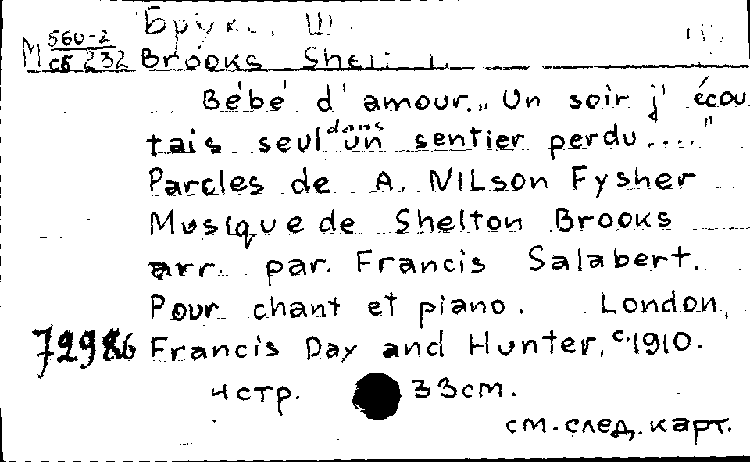 Брукс, Ш.
М 560-2
сб 232 Brooks Shelt.
Bébé d'amour. „Un soir j' écou
tais seul dans un sentier perdu...."
Paroles de A. Nilson Fysher
Musique de Shelton Brooks
arr. par. Francis Salabert.
Pour chant et piano. London,
72986 Francis Day and Hunter, c.1910.
4 стр. 33см.
см. след. карт.